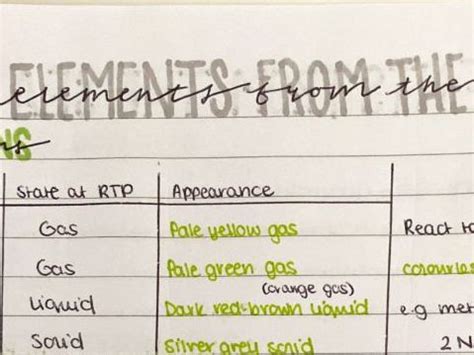 ELEMENTS FROM THE
elements from the
State at RTP Appearance
Gas Pale yellow gas React to
Gas Pale green gas colourles
(orange gas)
Liquid Dark red-brown liquid e.g met
Solid Silver grey solid 2 N